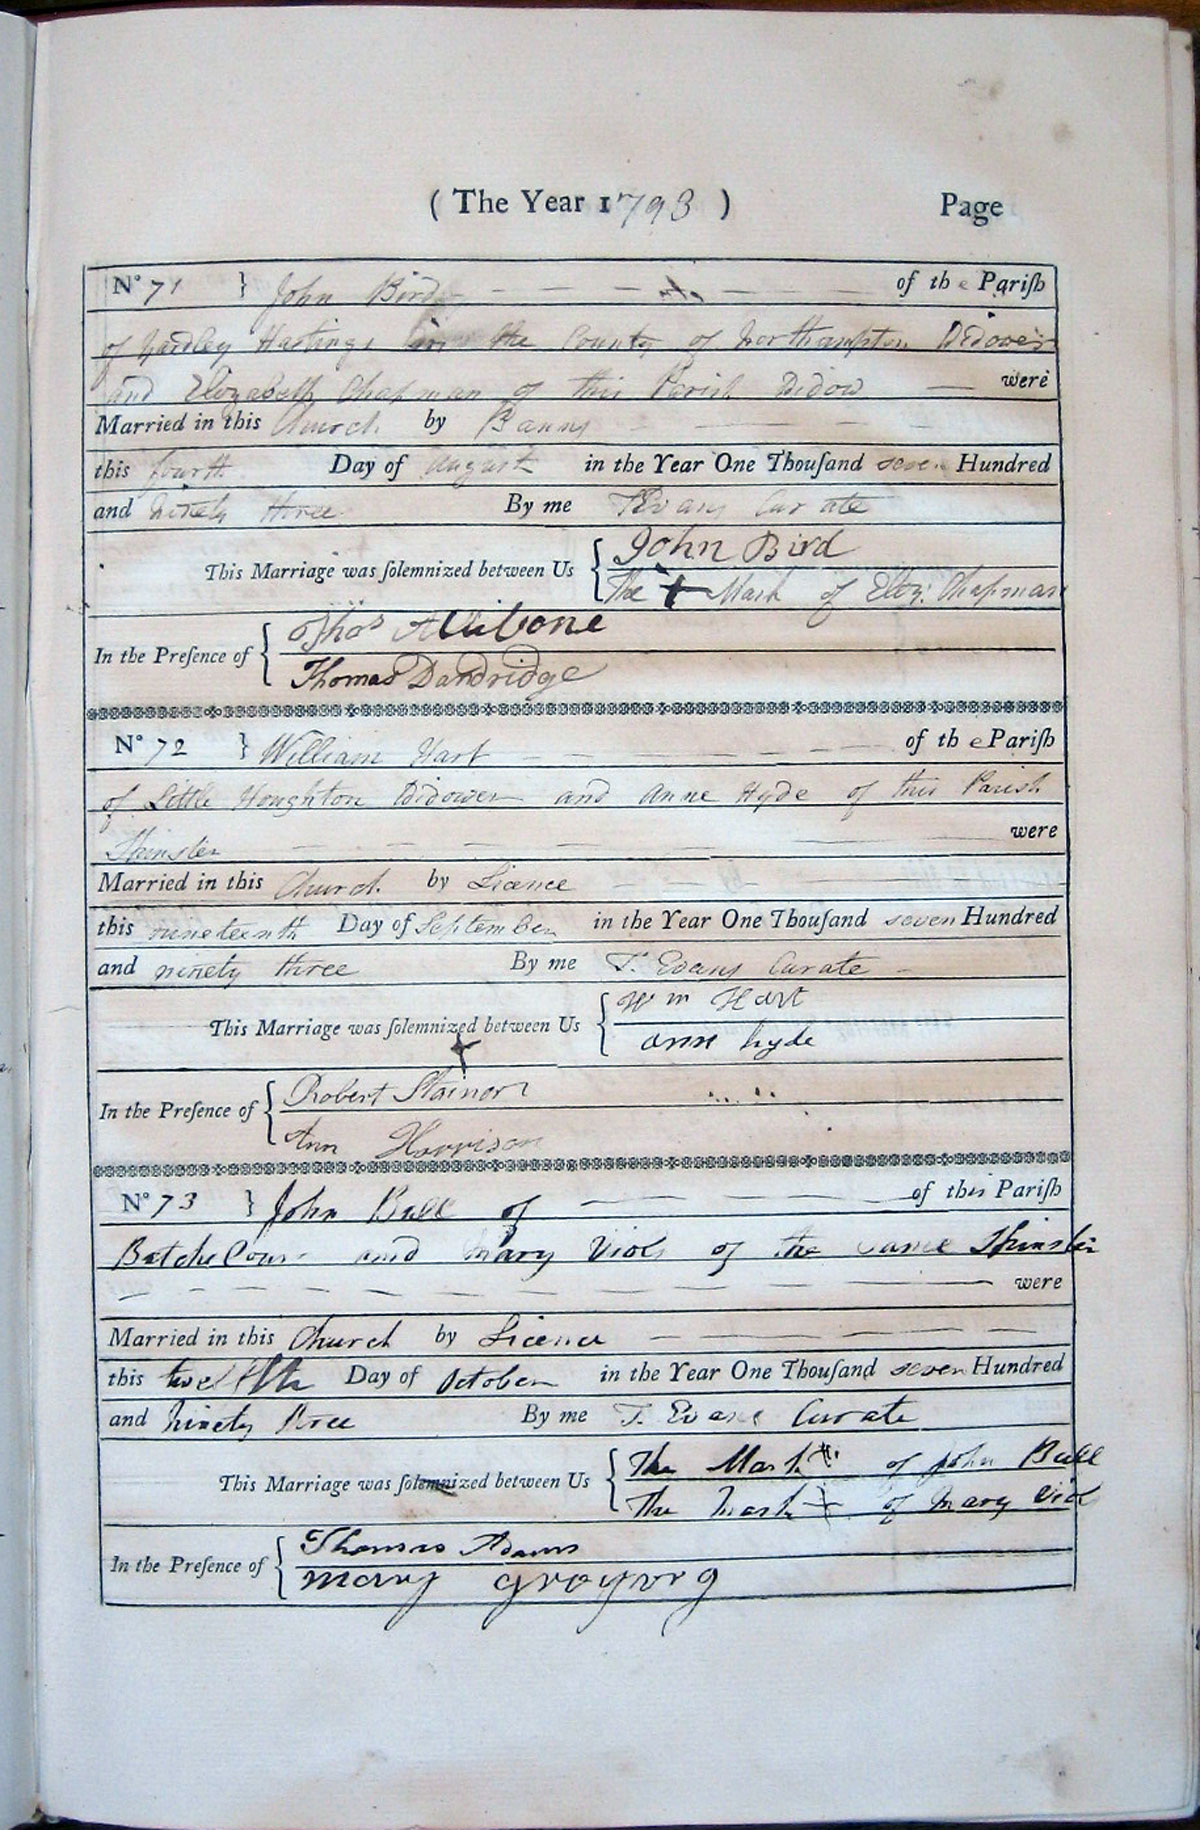 ( The Year 1793 ) Page
No 71 } John Bird of the Pariſh
of Yardley Hastings in the County of Northampton Widower
and Elizabeth Chapman of this Parish Widow were
Married in this Church by Banns
this fourth Day of August in the Year One Thouſand seven Hundred
and ninety three By me T Evans Curate
John Bird
This Marriage was ſolemnized between Us {
The + Mark of Eliz: Chapman
Thos Allibone
In the Preſence of {
Thomas Dandridge
No 72 } William Hart of the Pariſh
of Little Houghton Widower and Anne Hyde of this Parish
Spinster were
Married in this Church by Licence
this nineteenth Day of September in the Year One Thouſand seven Hundred
and ninety three By me T. Evans Curate
Wm Hart
This Marriage was ſolemnized between Us {
ann hyde
Robert Stainor
In the Preſence of {
Ann Harrison
No 73 } John Bull of of this Pariſh
Batchelour and Mary Viols of the same Spinster
were
Married in this Church by Licence
this twelfth Day of October in the Year One Thouſand seven Hundred
and ninety three By me T. Evans Curate
The Mark of John Bull
This Marriage was ſolemnized between Us {
The mark + of Mary
Thomas Adams
In the Preſence of {
mary